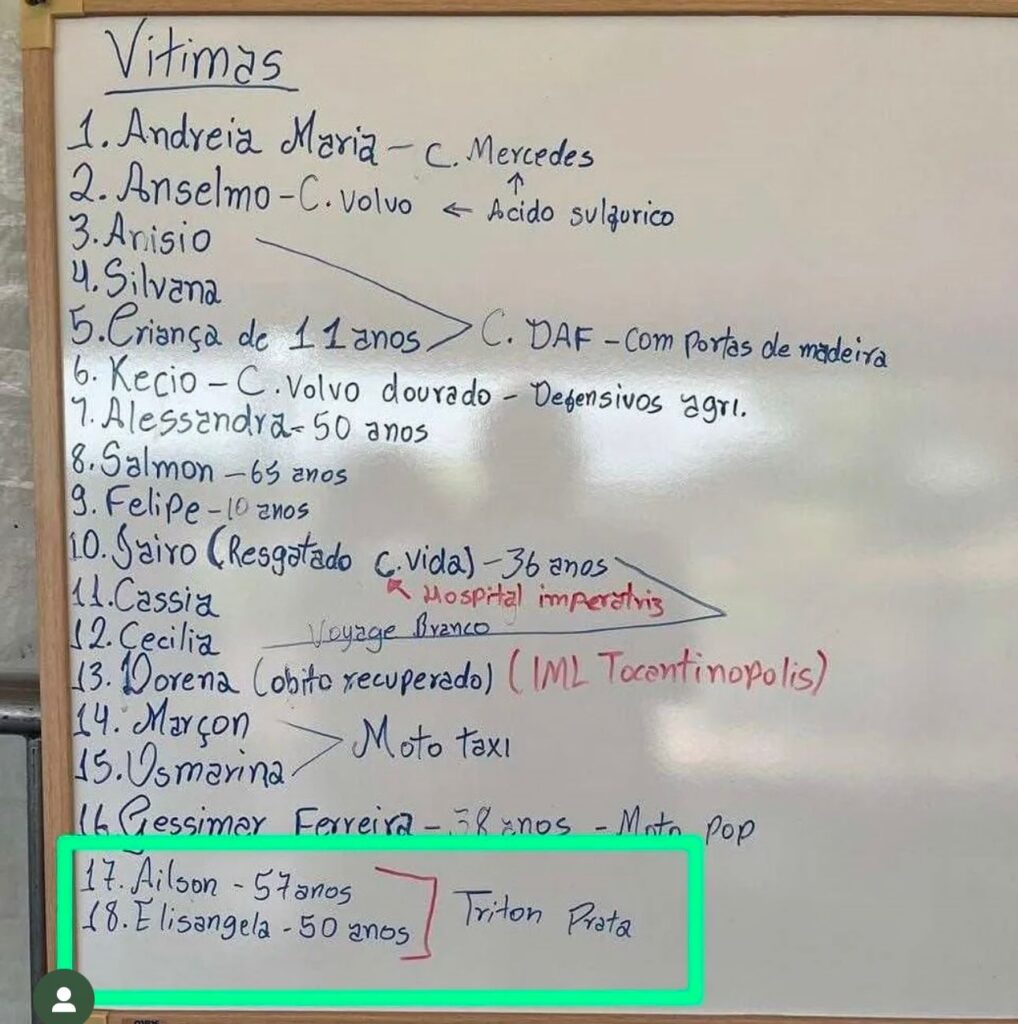 Vitimas
1. Andreia Maria - C. Mercedes
2. Anselmo - C. Volvo ← Acido sulfurico
3. Anisio
4. Silvana
5. Criança de 11 anos C. DAF - Com Portas de madeira
6. Kecio - C. Volvo dourado - Defensivos agri.
7. Alessandra - 50 anos
8. Salmon - 65 anos
9. Felipe - 10 anos
10. Jairo (Resgatado C. Vida) - 36 anos
11. Cassia Hospital imperatriz
12. Cecilia Voyage Branco
13. Dorena (obito recuperado) (IML Tocantinopolis)
14. Marçon
Moto taxi
15. Osmarina
16 Gessimar Ferreira - 38 anos - Moto pop
17. Ailson - 57 anos
Triton Prata
18. Elisangela - 50 anos